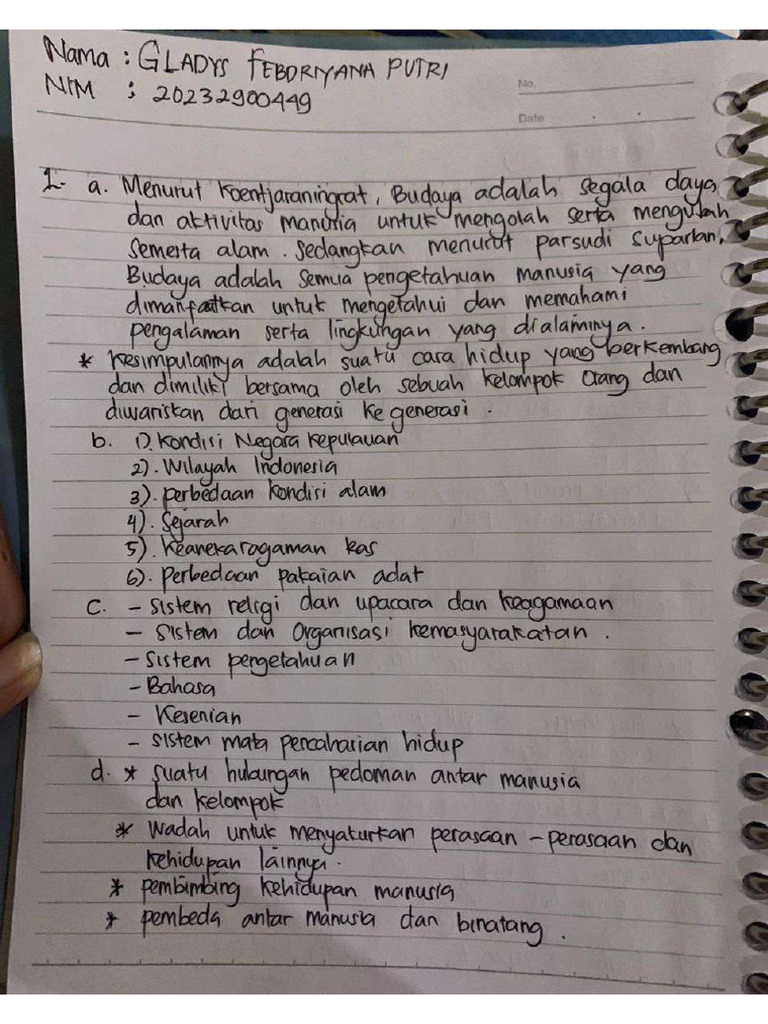 Nama : GLADYS FEBORIYANA PUTRI
NIM : 20232900449
No.
Date
1. a. Menurut Koentjaraningrat, Budaya adalah segala daya
dan aktivitas manusia untuk mengolah serta mengubah
semesta alam. Sedangkan menurut parsudi suparlan,
Budaya adalah semua pengetahuan manusia yang
dimanfaatkan untuk mengetahui dan memahami
pengalaman serta lingkungan yang dialaminya.
* Kesimpulannya adalah suatu cara hidup yang berkembang
dan dimiliki bersama oleh sebuah kelompok orang dan
diwariskan dari generasi ke generasi.
b. 1). Kondisi Negara Kepulauan
2). Wilayah Indonesia
3). perbedaan kondisi alam
4). Sejarah
5). Keanekaragaman kas
6). Perbedaan pakaian adat
c. - sistem religi dan upacara dan keagamaan
- sistem dan organisasi kemasyarakatan.
- sistem pengetahuan
- Bahasa
- Kesenian
- sistem mata pencaharian hidup
d. * suatu hubungan pedoman antar manusia
dan kelompok
* wadah untuk menyalurkan perasaan - perasaan dan
kehidupan lainnya.
* pembimbing kehidupan manusia
* pembeda antar manusia dan binatang.